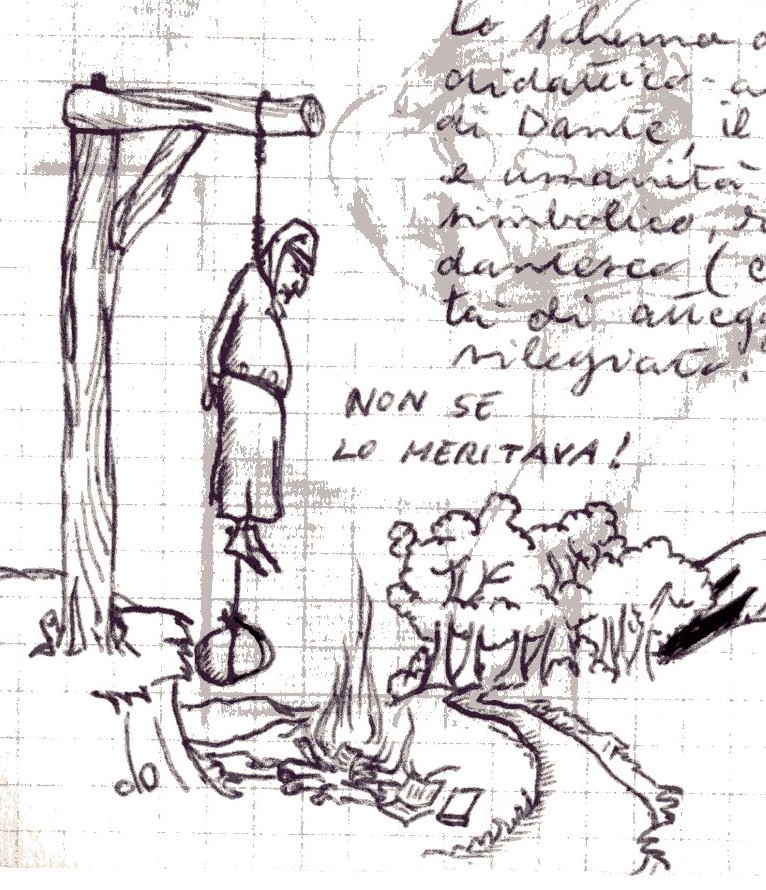 Lo schema
didattico-a
di Dante, il
e umanità
simbolico,
dantesca (c
tà di alleg
vilegiato.
NON SE
LO MERITAVA!